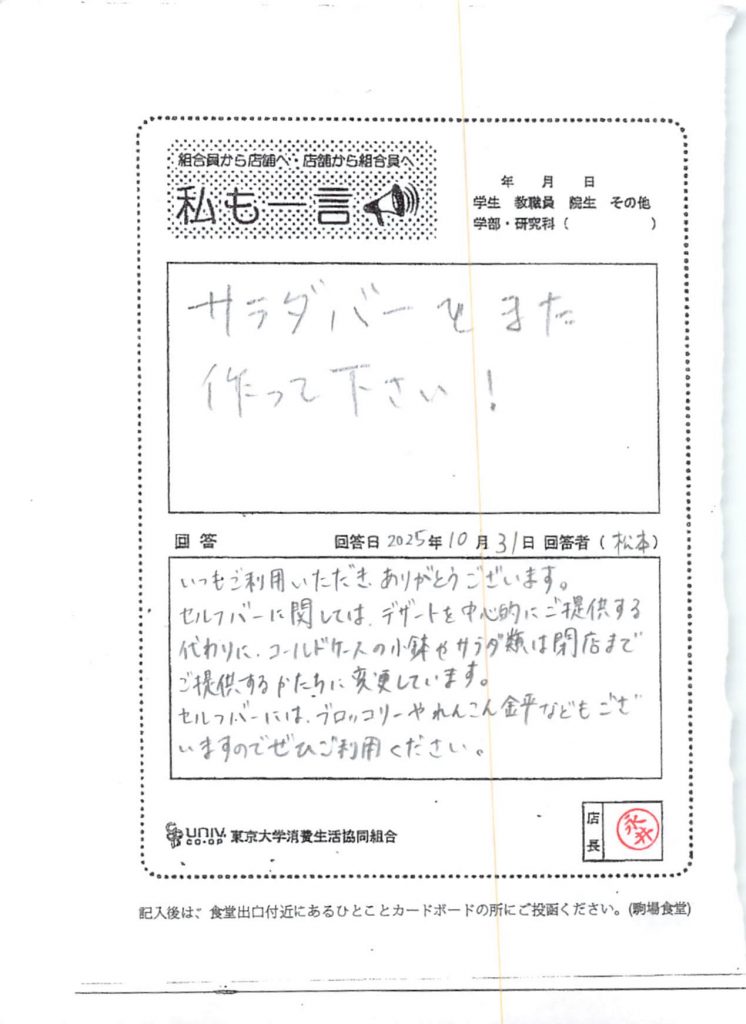 組合員から店舗へ・店舗から組合員へ
私も一言
年 月 日
学生 教職員 院生 その他
学部・研究科（ ）
サラダバーをまた
作って下さい！
回答 回答日 2025年10月31日 回答者（松本）
いつもご利用いただき、ありがとうございます。
セルフバーに関しては、デザートを中心的にご提供する
代わりに、コールドケースの小鉢やサラダ類は閉店まで
ご提供するかたちに変更しています。
セルフバーには、ブロッコリーやれんこん金平などもござ
いますのでぜひご利用ください。
UNIV. CO-OP 東京大学消費生活協同組合
店長 永井
記入後は、食堂出口付近にあるひとことカードボードの所にご投函ください。(駒場食堂)